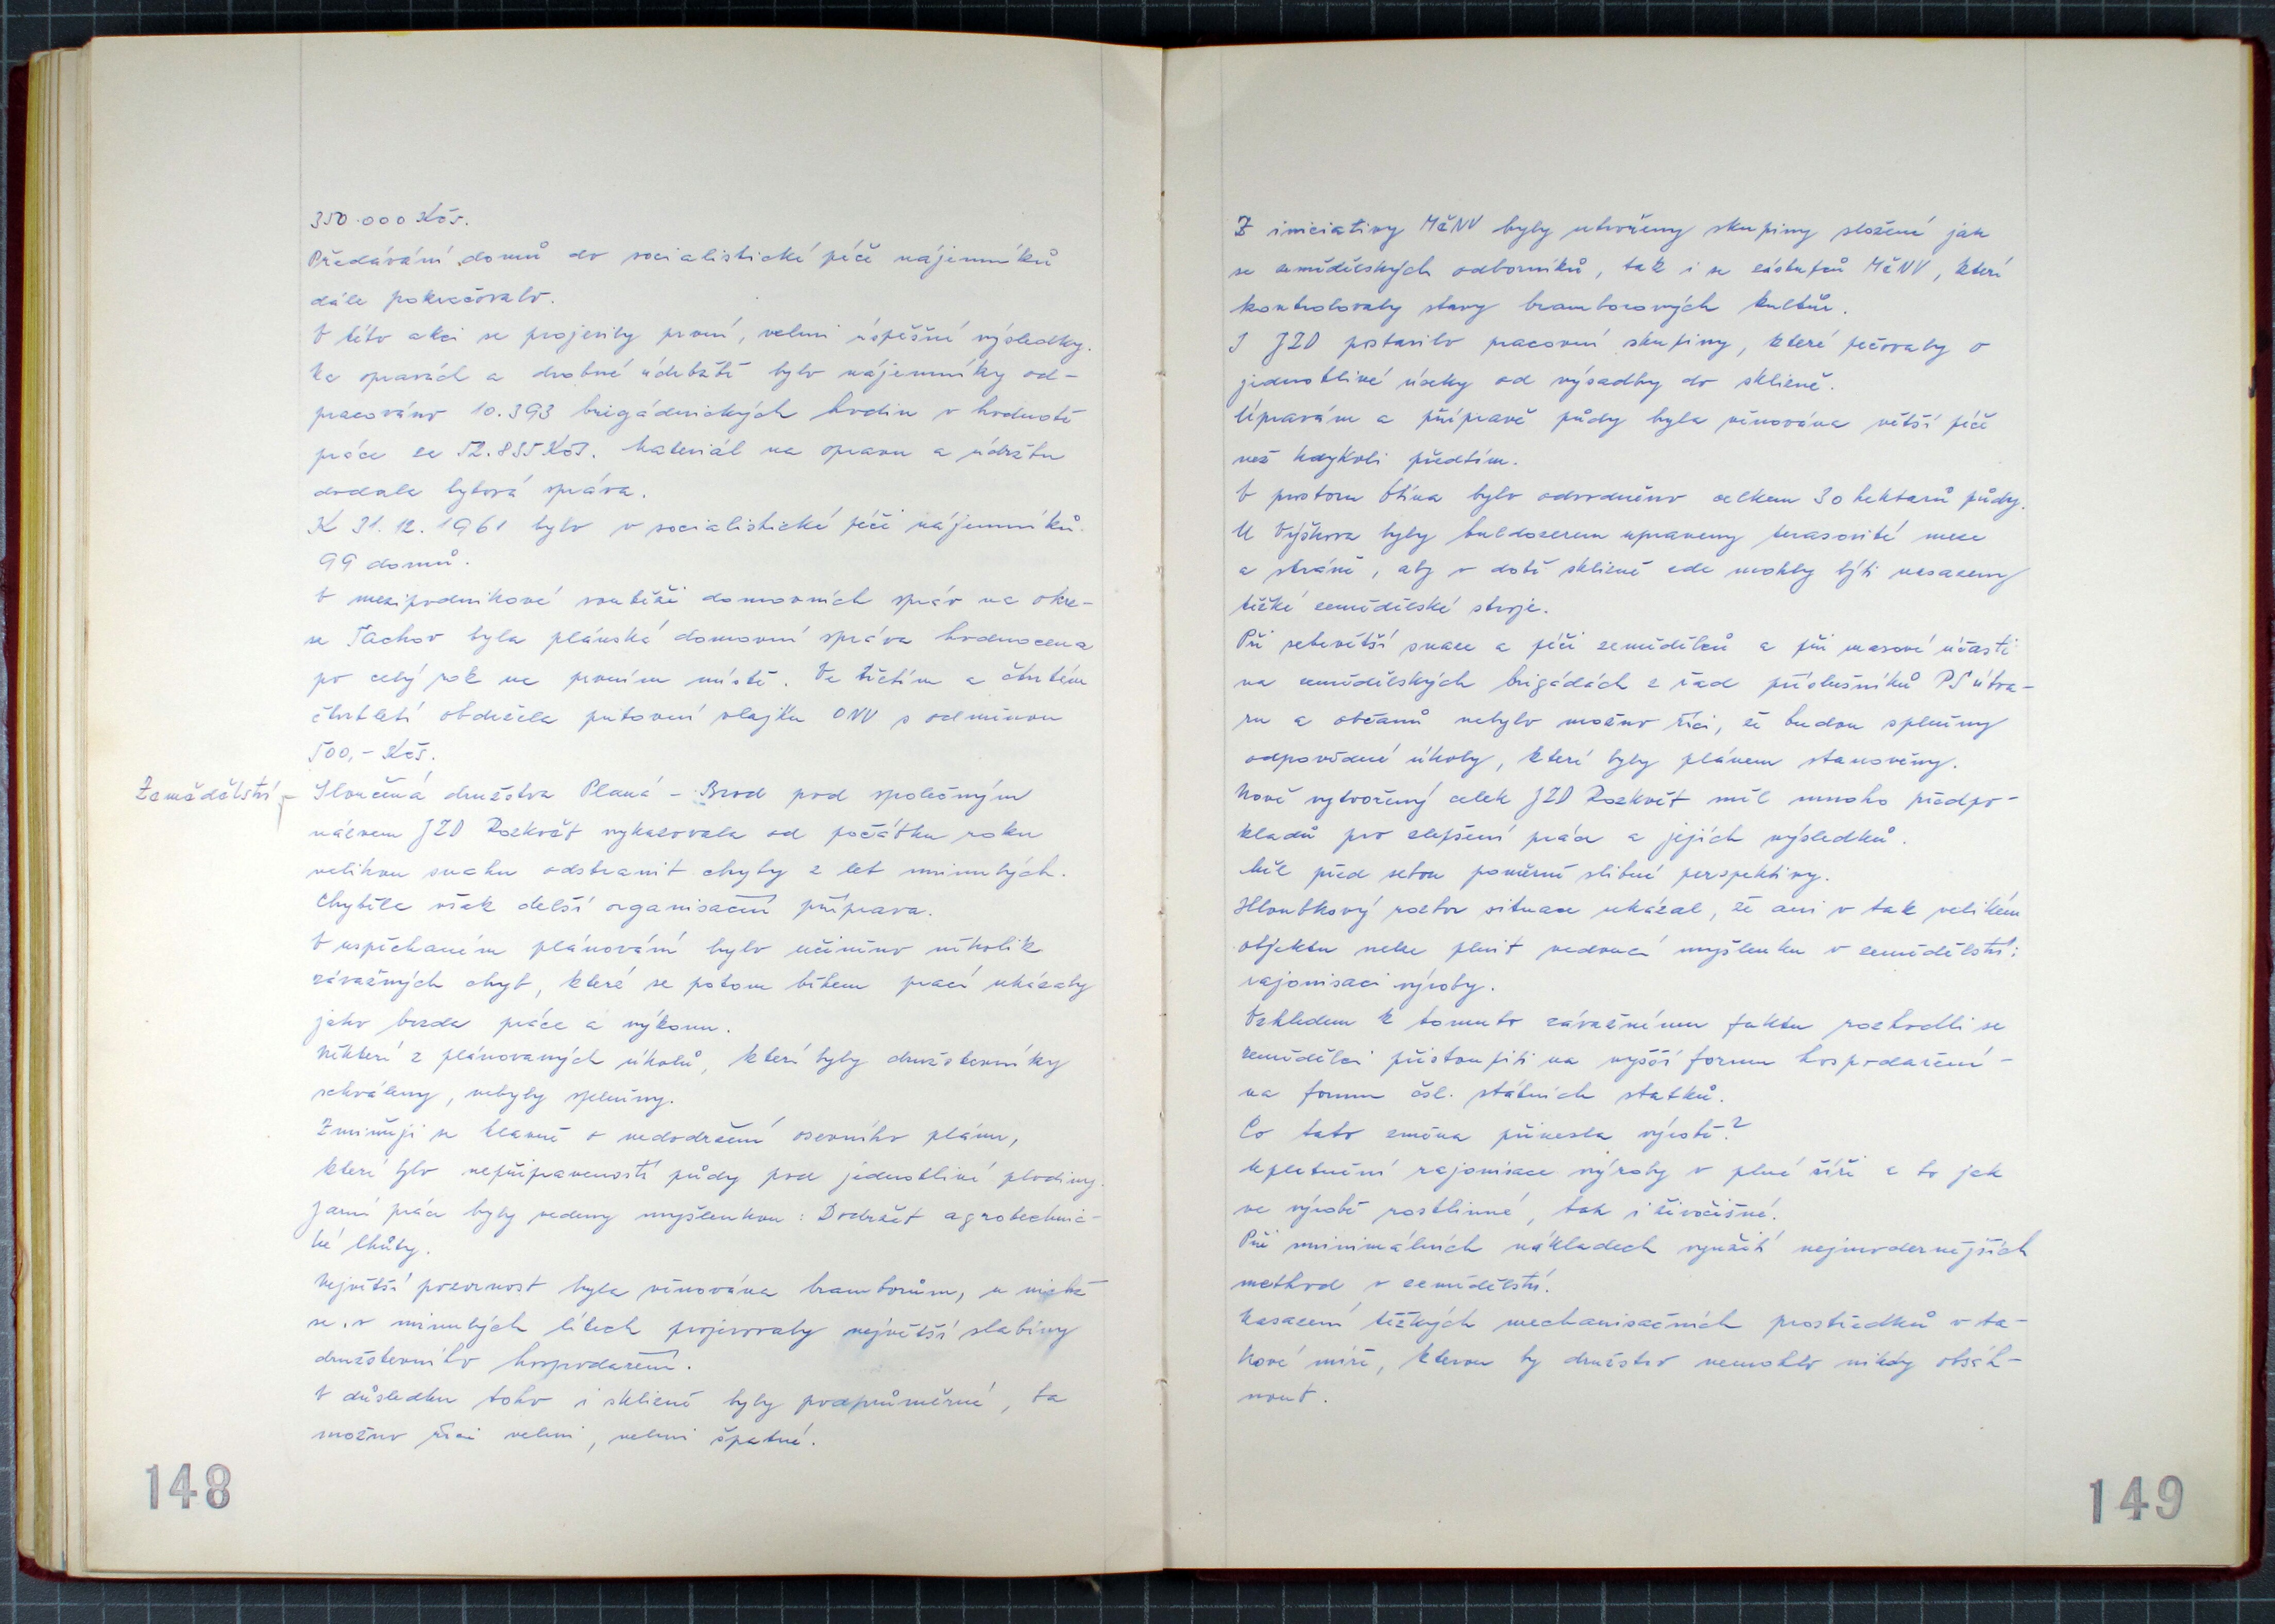 350.000 Kčs.
Předávání domů do socialistické péče nájemníků
dále pokračovalo.
V této akci se projevily první, velmi úspěšné výsledky.
Na opravách a drobné údržbě bylo nájemníky od-
pracováno 10.393 brigádnických hodin v hodnotě
práce za 52.835 Kčs. Materiál na opravu a údržbu
dodala bytová správa.
K 31.12.1961 bylo v socialistické péči nájemníků
99 domů.
V mezipodnikové soutěži domovních správ na okre-
se Tachov byla plánská domovní správa hodnocena
po celý rok na prvním místě. Ve třetím a čtvrtém
čtvrtletí obdržela putovní vlajku ONV s odměnou
500,- Kčs.
Zemědělství – Sloučená družstva Planá – Brod pod společným
názvem JZD Rozkvět vykazovala od počátku roku
velikou snahu odstranit chyby z let minulých.
Chyběla však delší organisační příprava.
V uspěchaném plánování bylo učiněno několik
závažných chyb, které se potom během prací ukázaly
jako brzda práce a výkonu.
Některé z plánovaných úkolů, které byly družstevníky
schváleny, nebyly splněny.
Zmiňuji se hlavně o nedodržení osevního plánu,
které bylo nepřipraveností půdy pod jednotlivé plodiny.
Jarní práce byly vedeny myšlenkou: Dodržet agrotechnic-
ké lhůty.
Největší pozornost byla věnována bramborům, u nichž
se v minulých létech projevovaly největší slabiny
družstevního hospodaření.
V důsledku toho i sklizně byly podprůměrné, ba
možno říci velmi, velmi špatné.
148
Z iniciativy MěNV byly utvořeny skupiny složené jak
ze zemědělských odborníků, tak i ze zástupců MěNV, které
kontrolovaly stavy bramborových kultur.
I JZD postavilo pracovní skupiny, které pečovaly o
jednotlivé úseky od výsadby do sklizně.
Úpravám a přípravě půdy byla věnována větší péče
než kdykoli předtím.
V prostoru Otína bylo odvodněno celkem 30 hektarů půdy.
U Výškova byly buldozerem upraveny terasovité meze
a stráně, aby v době sklizně zde mohly býti nasazeny
těžké zemědělské stroje.
Při sebevětší snaze a péči zemědělců a při masové účasti
na zemědělských brigádách z řad příslušníků PS útva-
ru a občanů nebylo možno říci, že budou splněny
odpovědné úkoly, které byly plánem stanoveny.
Nově vytvořený celek JZD Rozkvět měl mnoho předpo-
kladů pro zlepšení práce a jejích výsledků.
Měl před sebou poměrně slibné perspektivy.
Hloubkový rozbor situace ukázal, že ani v tak velikém
objektu nelze plnit vedoucí myšlenku v zemědělství:
rajonisaci výroby.
Vzhledem k tomuto závažnému faktu rozhodli se
zemědělci přistoupiti na vyšší formu hospodaření –
na formu čsl. státních statků.
Co tato změna přinesla výrobě?
Uplatnění rajonisace výroby v plné šíři a to jak
ve výrobě rostlinné, tak i živočišné.
Při minimálních nákladech využití nejmodernějších
method v zemědělství.
Nasazení těžkých mechanisačních prostředků v ta-
kové míře, kterou by družstvo nemohlo nikdy obsáh-
nout.
149